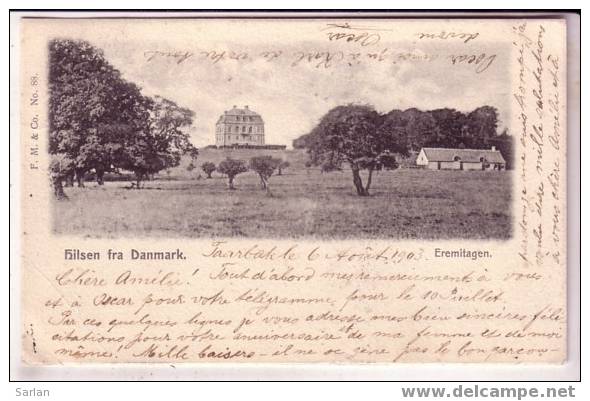 F. M. & Co. No. 88.
Hilsen fra Danmark.
Eremitagen.
Taarbæk le 6 Août, 1903
Chère Amélie! Tout d'abord mes remerciements à vous
et à Oscar pour votre télégramme, pour le 10 Juillet.
Par ces quelques lignes je vous adresse mes bien sincères féli
citations pour votre anniversaire et de ma femme et de moi
même! Mille baisers - il ne se gène pas le bon garçon -
à vous chère Amélie et à
Oscar
Sarlan
www.delcampe.net